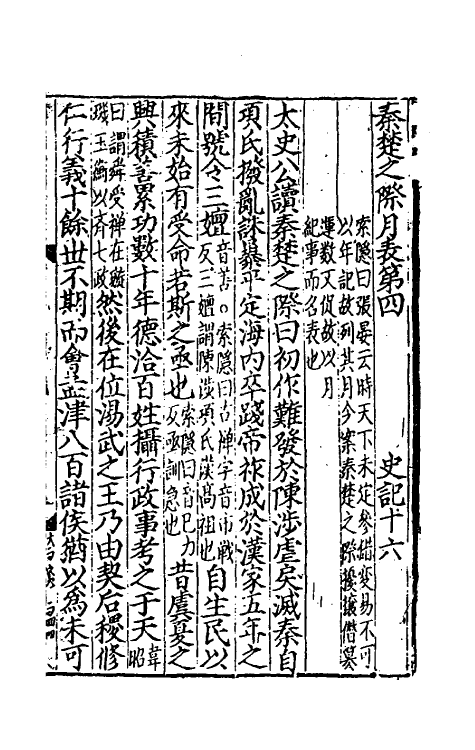 秦楚之際月表第四 史記十六
索隱曰張晏云時天下未定參錯變易不可
以年記故列其月今案秦楚之際擾攘僭簒
運數又促故以月
紀事而名表也
太史公讀秦楚之際曰初作難發於陳涉虐戾滅秦自
項氏撥亂誅暴平定海内卒踐帝祚成於漢家五年之
間號令三嬗音善。索隱曰古禪字音市戰
反三嬗謂陳涉項氏漢高祖也自生民以
來未始有受命若斯之亟也索隱曰音己力
反亟訓急也昔虞夏之
興積善累功數十年德洽百姓攝行政事考之于天韋昭
曰謂舜受禅在璇
璣玉衡以齊七政然後在位湯武之王乃由契后稷修
仁行義十餘丗不期而會孟津八百諸侯猶以爲未可